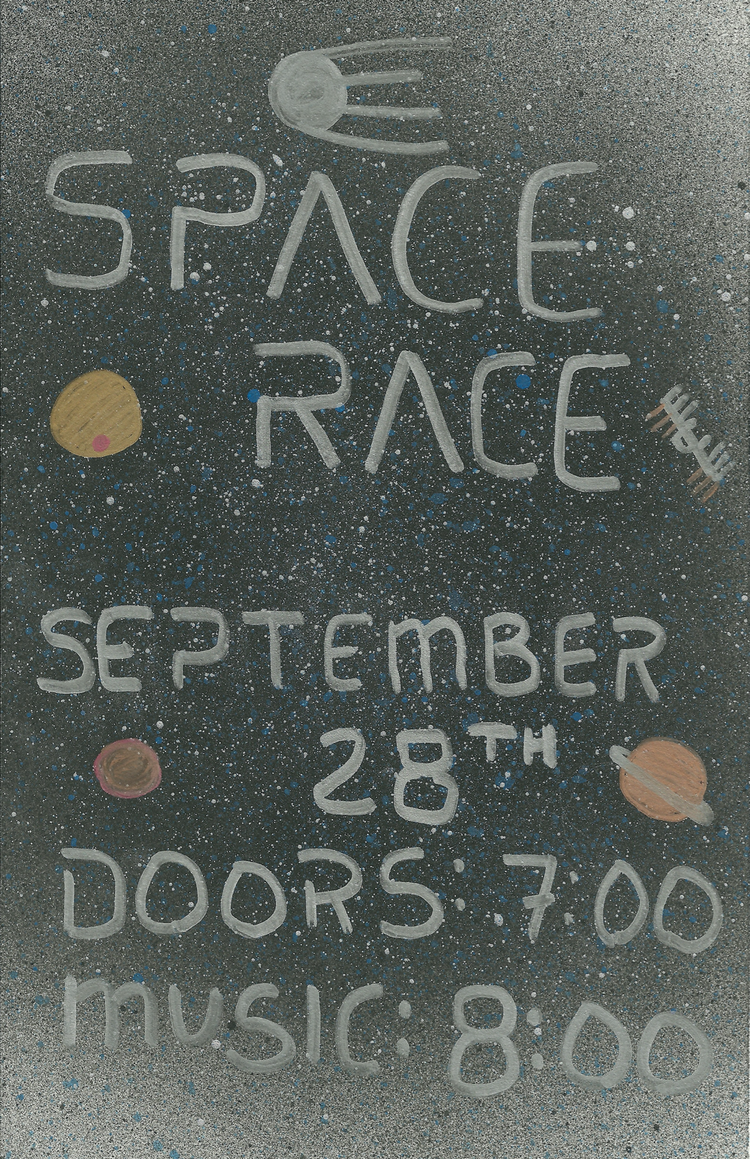 SPACE
RACE
SEPTEMBER
28TH
DOORS: 7:00
MUSIC: 8:00